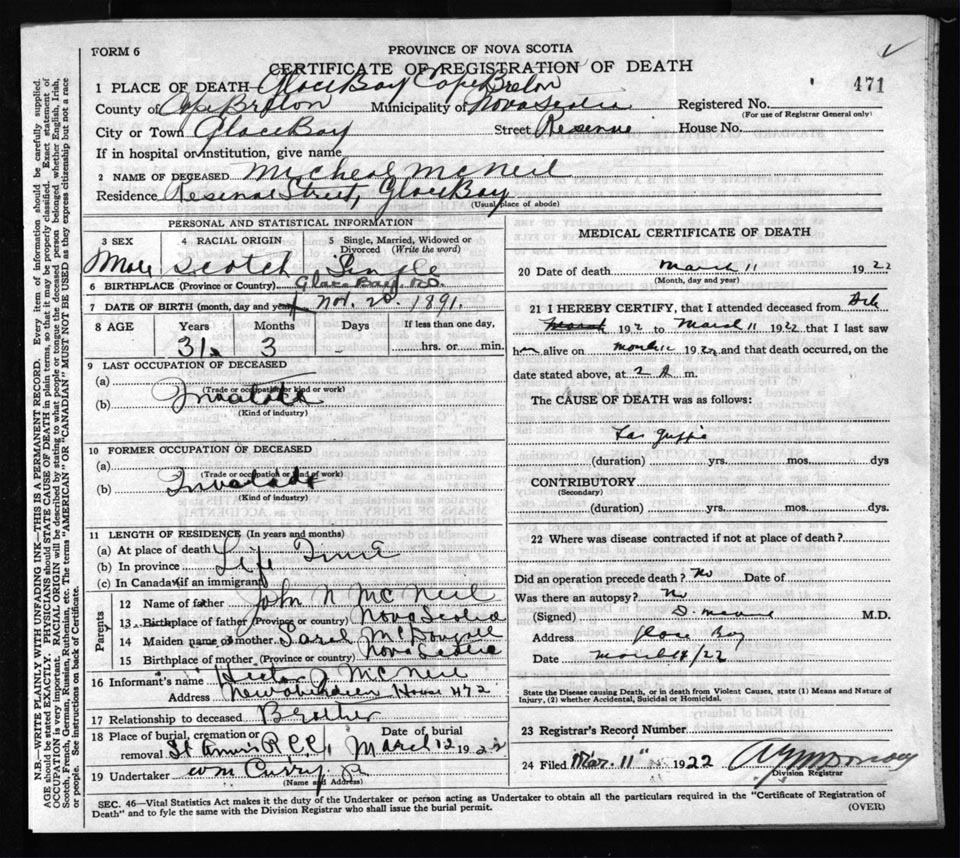 FORM 6
PROVINCE OF NOVA SCOTIA
CERTIFICATE OF REGISTRATION OF DEATH
471
1 PLACE OF DEATH Glace Bay Cape Breton
County of Cape Breton Municipality of Nova Scotia Registered No.
(For use of Registrar General only)
City or Town Glace Bay Street House No.
If in hospital or institution, give name
2 NAME OF DECEASED Micheal McNeil
Residence Street, Glace Bay
(Usual place of abode)
PERSONAL AND STATISTICAL INFORMATION
3 SEX 4 RACIAL ORIGIN 5 Single, Married, Widowed or Divorced (Write the word)
Male Scotch Single
6 BIRTHPLACE (Province or Country) Glace Bay, N.S.
7 DATE OF BIRTH (month, day and year) Nov. 20. 1891.
8 AGE Years Months Days If less than one day,
31 3 - hrs. or min.
9 LAST OCCUPATION OF DECEASED
(a)
(Trade or occupation or kind or work)
(b)
(Kind of industry)
10 FORMER OCCUPATION OF DECEASED
(a)
(Trade or occupation or kind of work)
(b)
(Kind of industry)
11 LENGTH OF RESIDENCE (In years and months)
(a) At place of death
(b) In province Life Time
(c) In Canada (if an immigrant)
Parents
12 Name of father John N McNeil
13 Birthplace of father (Province or country) Nova Scotia
14 Maiden name of mother Sarah McDougall
15 Birthplace of mother (Province or country) Nova Scotia
16 Informant's name Hector J McNeil
Address New Aberdeen House 472
17 Relationship to deceased Brother
18 Place of burial, cremation or removal Date of burial
St Ann's R C C, March 12 1922
19 Undertaker Wm Curry Jr
(Name and Address)
MEDICAL CERTIFICATE OF DEATH
20 Date of death March 11 1922
(Month, day and year)
21 I HEREBY CERTIFY, that I attended deceased from Feb
192 to March 11 1922 that I last saw
him alive on March 11 1922 and that death occurred, on the
date stated above, at 2 A m.
The CAUSE OF DEATH was as follows:
La Grippe
(duration) yrs. mos. dys
CONTRIBUTORY
(Secondary)
(duration) yrs. mos. dys.
22 Where was disease contracted if not at place of death?
Did an operation precede death? No Date of
Was there an autopsy? No
(Signed) M.D.
Address Glace Bay
Date
State the Disease causing Death, or in death from Violent Causes, state (1) Means and Nature of Injury, (2) whether Accidental, Suicidal or Homicidal.
23 Registrar's Record Number
24 Filed Mar. 11" 1922
Division Registrar
SEC. 46—Vital Statistics Act makes it the duty of the Undertaker or person acting as Undertaker to obtain all the particulars required in the "Certificate of Registration of
Death" and to fyle the same with the Division Registrar who shall issue the burial permit.
(OVER)
N.B.—WRITE PLAINLY WITH UNFADING INK—THIS IS A PERMANENT RECORD. Every item of information should be carefully supplied.
AGE should be stated EXACTLY. PHYSICIANS should STATE CAUSE OF DEATH in plain terms, so that it may be properly classified. Exact statement of
OCCUPATION is very important. RACIAL ORIGIN will be described by stating to what people or tongue the deceased person belonged, whether English, Irish,
Scotch, French, German, Russian, Ruthenian, etc. The terms "AMERICAN" OR "CANADIAN" MUST NOT BE USED as they express citizenship but not a race
or people. See instructions on back of Certificate.